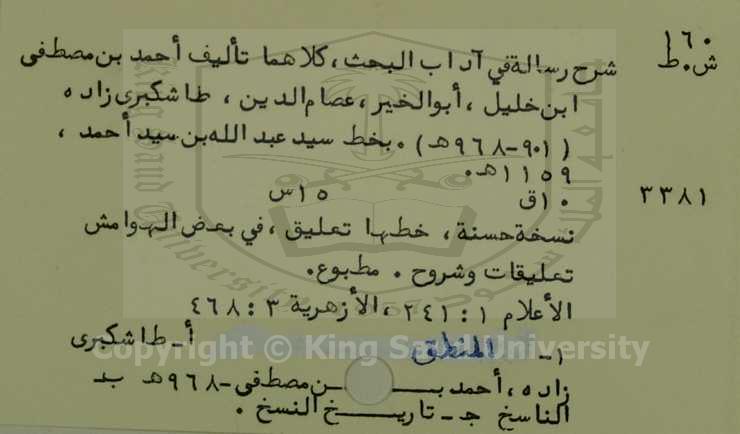 ١٦٠
ش.ط
شرح رسالة في آداب البحث، كلاهما تأليف أحمد بن مصطفى
ابن خليل، أبو الخير، عصام الدين، طاشكبرى زاده
(٩٠١-٩٦٨هـ). بخط سيد عبد الله بن سيد أحمد،
١١٥٩هـ.
٣٣٨١ ١٠ق ١٥س
نسخة حسنة، خطها تعليق، في بعض الهوامش
تعليقات وشروح. مطبوع.
الأعلام ١: ٢٤١، الأزهرية ٣: ٤٦٨
١- المنطق أ- طاشكبرى
زاده، أحمد بن مصطفى-٩٦٨هـ ب-
الناسخ ج- تاريخ النسخ.
Copyright © King Saud University